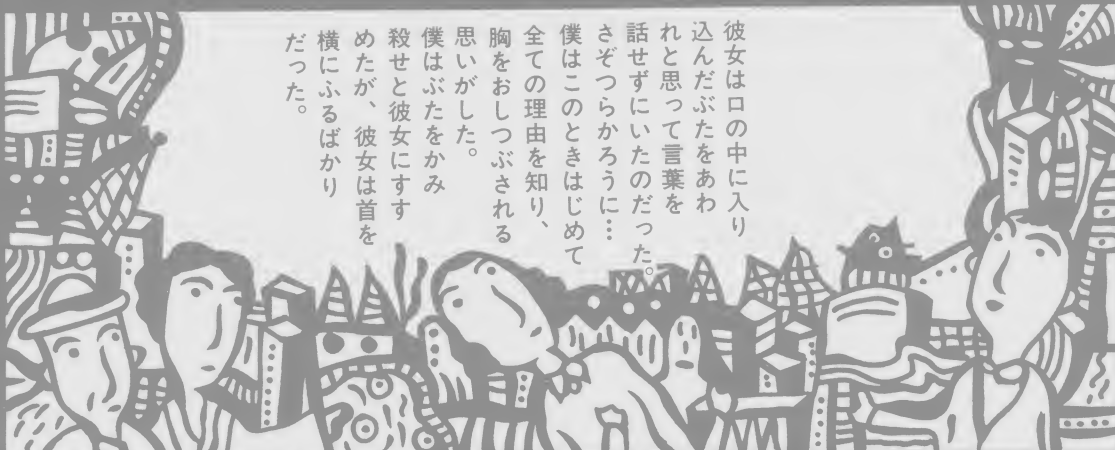 彼女は口の中に入り
込んだぶたをあわ
れと思って言葉を
話せずにいたのだった。
さぞつらかろうに…
僕はこのときはじめて
全ての理由を知り、
胸をおしつぶされる
思いがした。
僕はぶたをかみ
殺せと彼女にすす
めたが、彼女は首を
横にふるばかり
だった。